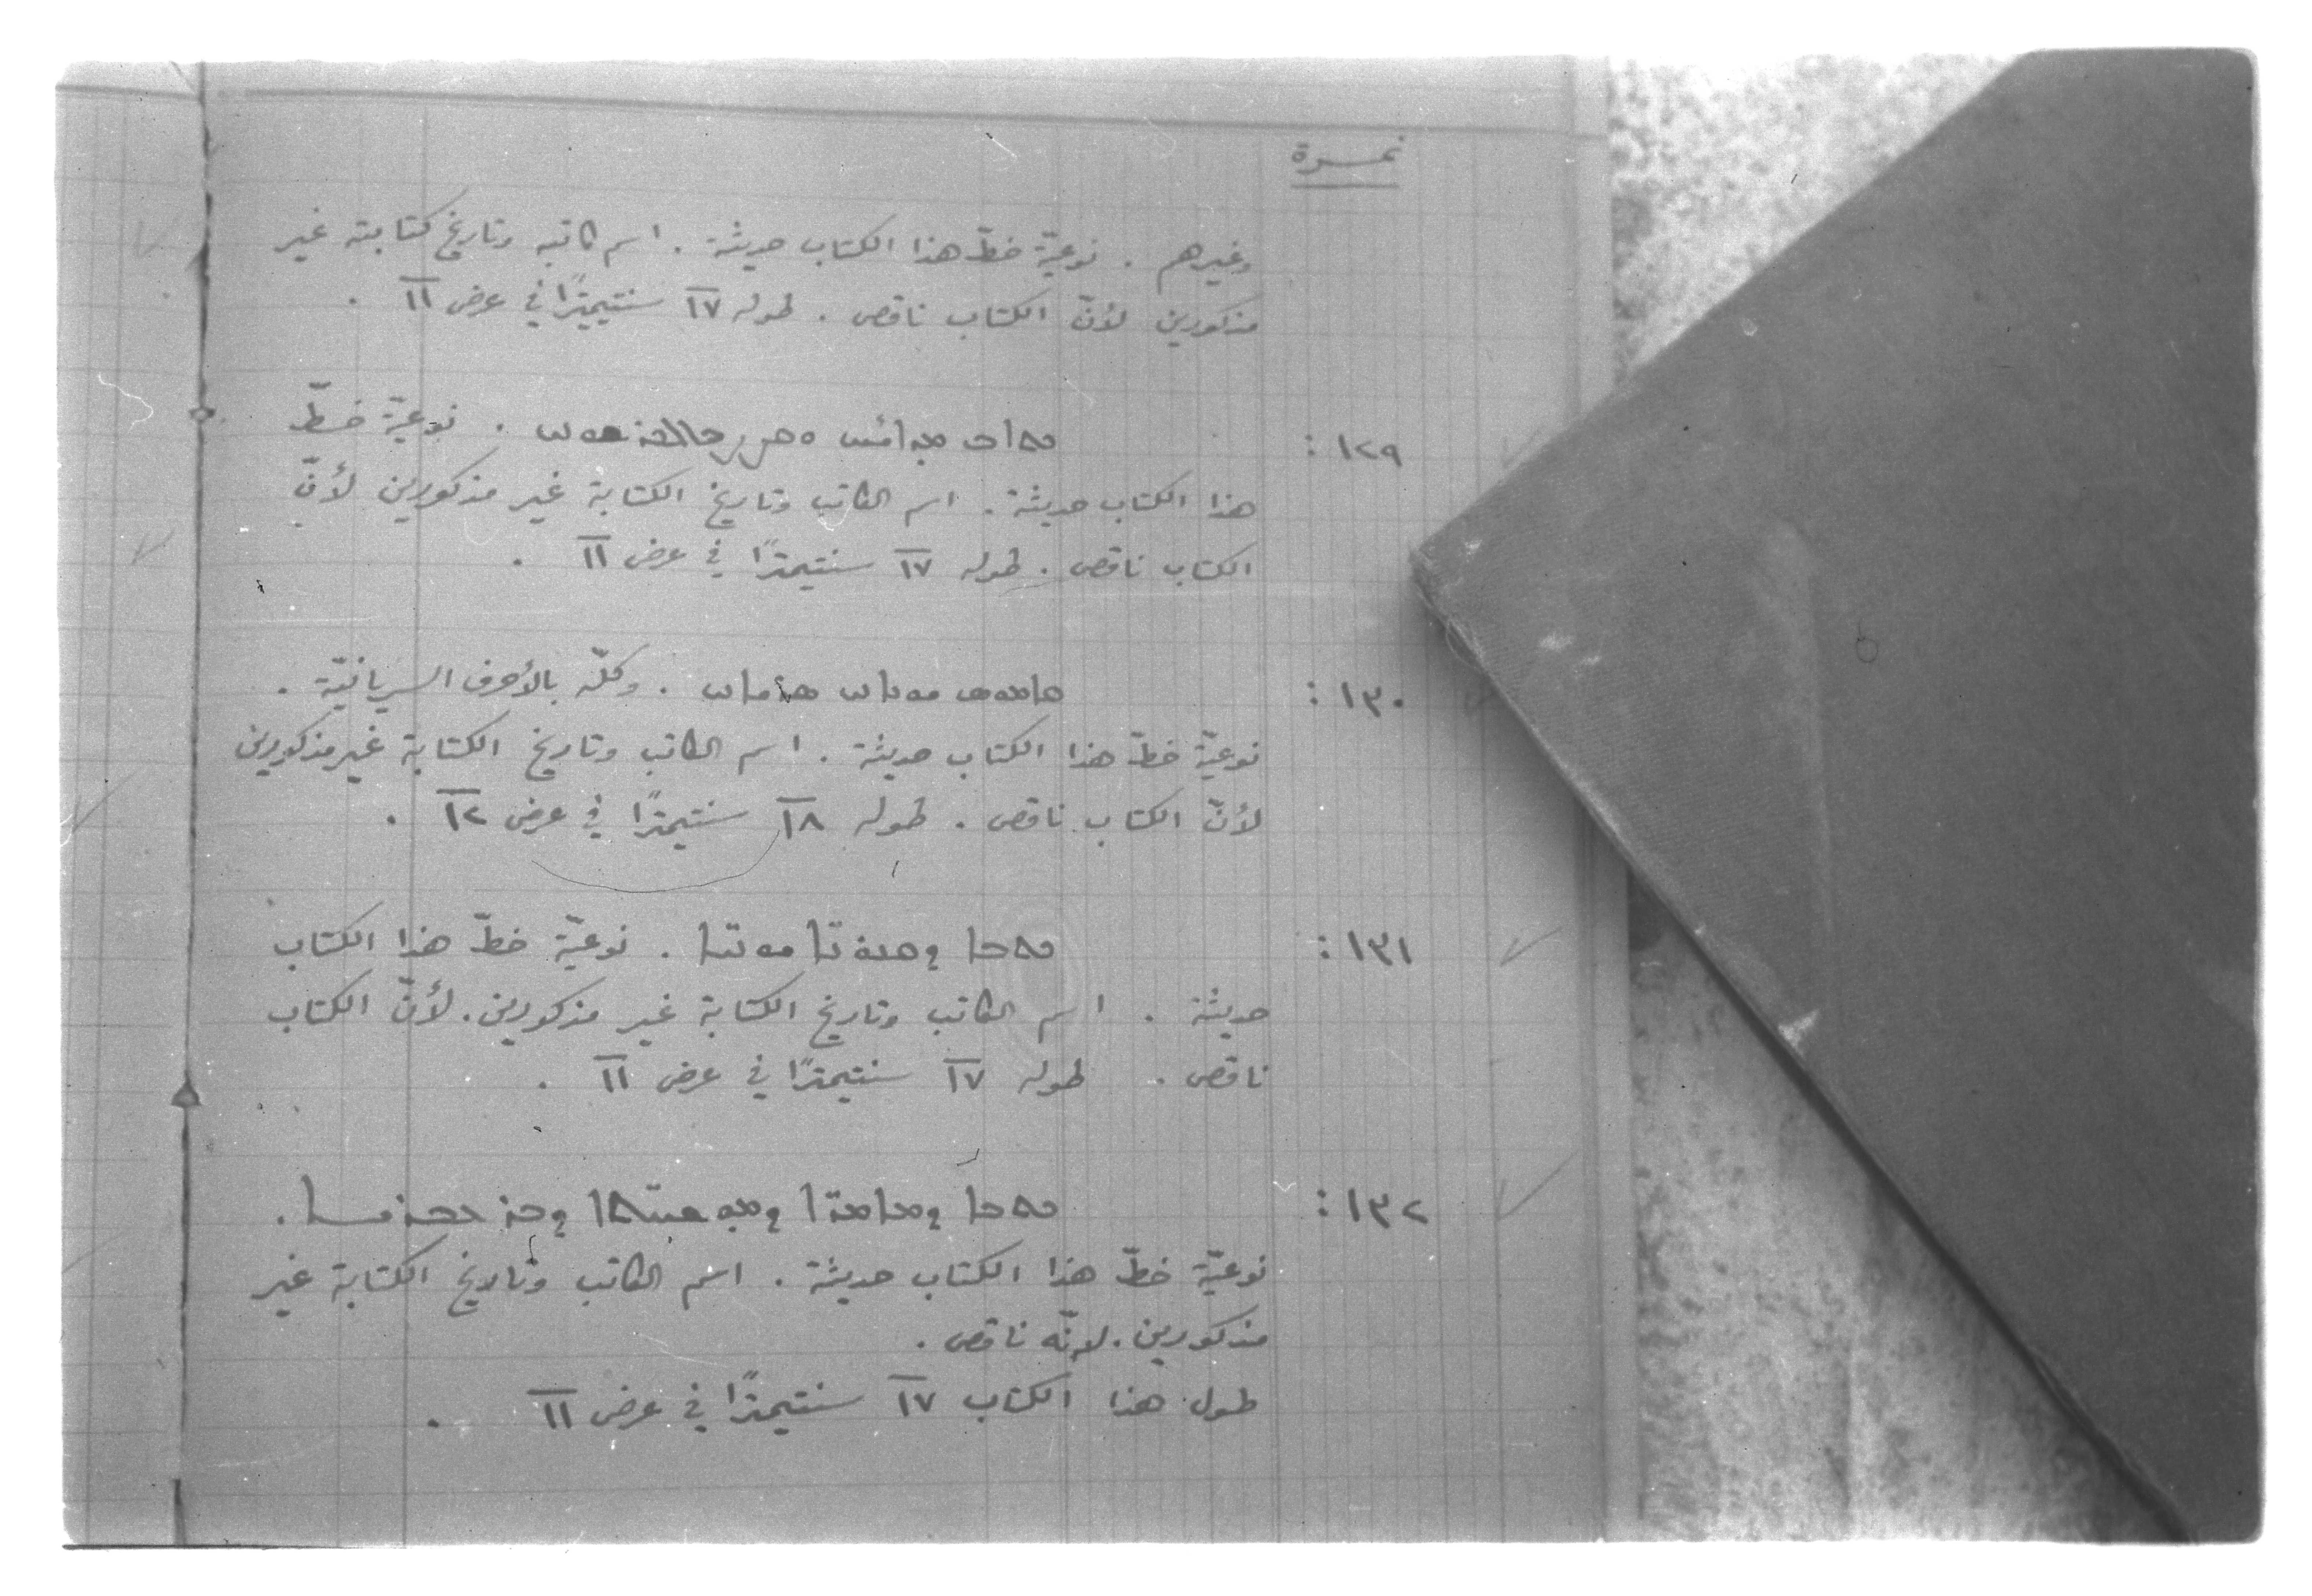 نمرة
وغيرهم . نوعيّة خطّ هذا الكتاب حديثة . اسم كاتبه وتاريخ كتابته غير
مذكورين لأنّ الكتاب ناقص . طوله ١٧ سنتيمترًا في عرض ١١ .
١٢٩ : ܟܬܐܒ . نوعيّة خطّ
هذا الكتاب حديثة . اسم الكاتب وتاريخ الكتابة غير مذكورين لأنّ
الكتاب ناقص . طوله ١٧ سنتيمترًا في عرض ١١ .
١٣٠ : . وكلّه بالأحرف السريانيّة .
نوعيّة خطّ هذا الكتاب حديثة . اسم الكاتب وتاريخ الكتابة غير مذكورين
لأنّ الكتاب ناقص . طوله ١٨ سنتيمترًا في عرض ١٢ .
١٣١ : ܟܬܒܐ . نوعيّة خطّ هذا الكتاب
حديثة . اسم الكاتب وتاريخ الكتابة غير مذكورين . لأنّ الكتاب
ناقص . طوله ١٧ سنتيمترًا في عرض ١١ .
١٣٢ : ܟܬܒܐ ܕܡܐܡܪ̈ܐ .
نوعيّة خطّ هذا الكتاب حديثة . اسم الكاتب وتاريخ الكتابة غير
مذكورين . لأنّه ناقص .
طول هذا الكتاب ١٧ سنتيمترًا في عرض ١١ .